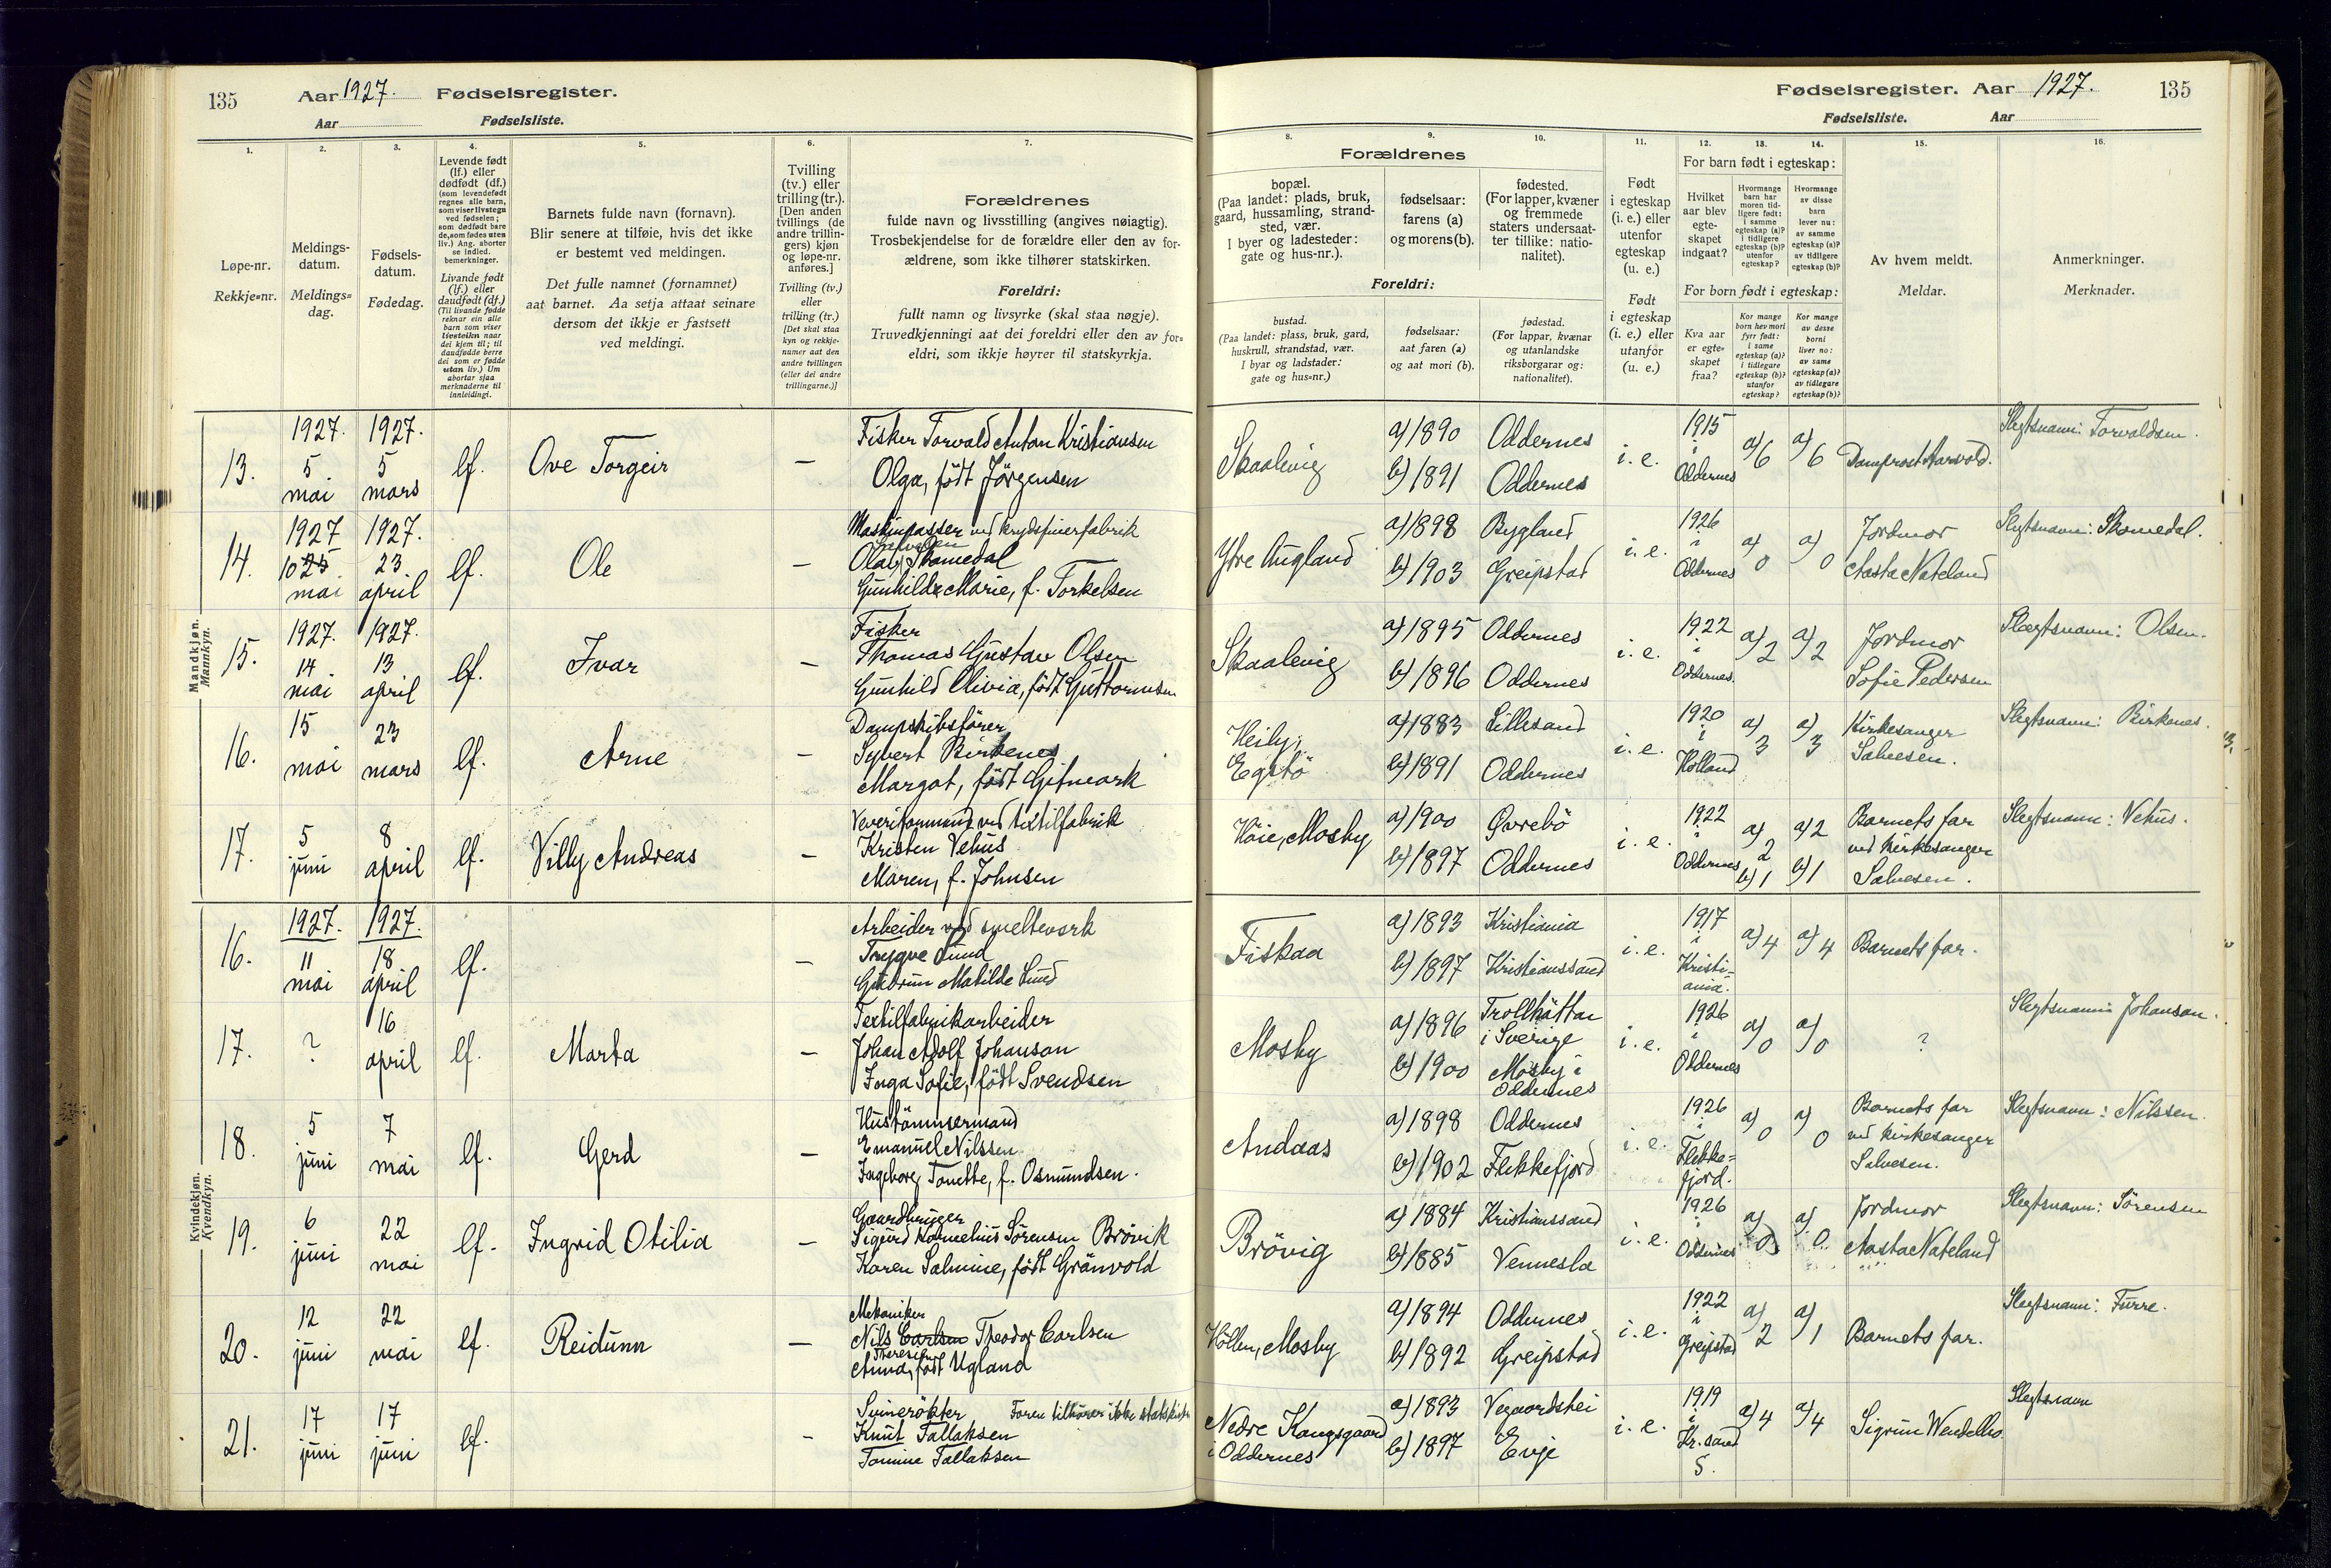 135
Aar 1927. Fødselsregister.
Aar Fødselsliste.
Fødselsregister. Aar 1927. 135
Fødselsliste. Aar
1.
Løpe-nr.
Rekkje=nr.
2.
Meldings-
datum.
Meldings=
dag.
3.
Fødsels-
datum.
Fødedag.
4.
Levende født
(lf.) eller
dødfødt (df.)
(som levendefødt
regnes alle barn,
som viser livstegn
ved fødselen;
som dødfødt bare
de, som fødes uten
liv.) Ang. aborter
se indled.
bemerkninger.
Livande født
(lf.) eller
daudfødt (df.)
(Til livande fødde
reknar ein alle
barn som viser
livsteikn naar
dei kjem til; til
daudfødde berre
dei som er fødde
utan liv.) Um
abortar sjaa
merknaderne til
innleidingi.
5.
Barnets fulde navn (fornavn).
Blir senere at tilføie, hvis det ikke
er bestemt ved meldingen.
Det fulle namnet (fornamnet)
aat barnet. Aa setja attaat seinare
dersom det ikkje er fastsett
ved meldingi.
6.
Tvilling
(tv.) eller
trilling (tr.).
[Den anden
tvillings (de
andre trillin-
gers) kjøn
og løpe-nr.
anføres.]
Tvilling (tv.)
eller
trilling (tr.)
[Det skal staa
kyn og rekkje-
numer aat den
andre tvillingen
(eller dei andre
trillingarne.)]
7.
Forældrenes
fulde navn og livsstilling (angives nøiagtig).
Trosbekjendelse for de forældre eller den av for-
ældrene, som ikke tilhører statskirken.
Foreldri:
fullt namn og livsyrke (skal staa nøgje).
Truvedkjenningi aat dei foreldri eller den av for=
eldri, som ikkje høyrer til statskyrkja.
8. 9. 10.
Forældrenes
bopæl.
(Paa landet: plads, bruk,
gaard, hussamling, strand-
sted, vær.
I byer og ladesteder:
gate og hus-nr.).
fødselsaar:
farens (a)
og morens (b).
fødested.
(For lapper, kvæner
og fremmede
staters undersaat-
ter tillike: natio-
nalitet).
Foreldri:
bustad.
(Paa landet: plass, bruk, gard,
huskrull, strandstad, vær.
I byar og ladstader:
gate og hus=nr.)
fødselsaar:
aat faren (a)
og aat mori (b).
fødestad.
(For lappar, kvænar
og utanlandske
riksborgarar og:
nationalitet).
11.
Født
i egteskap
(i. e.) eller
utenfor
egteskap
(u. e.)
Født
i egteskap
(i. e.) eller
utanfor
(u. e.)
12. 13. 14.
For barn født i egteskap:
Hvilket
aar blev
egte-
skapet
indgaat?
Hvormange
barn har
moren tid-
ligere født:
i samme
egteskap (a)?
i tidligere
egteskap (b)?
utenfor
egteskap?
Hvormange
av disse
barn
lever nu:
av samme
egteskap (a)?
av tidligere
egteskap (b)?
For born født i egteskap:
Kva aar
er egte=
skapet
fraa?
Kor mange
born hev mori
fyrr født:
i same
egteskap (a)?
i tidlegare
egteskap (b)?
utanfor
egteskap?
Kor mange
av desse
borni
liver no:
av same
egteskap (a)?
av tidlegare
egteskap (b)?
15.
Av hvem meldt.
Meldar.
16.
Anmerkninger.
Merknader.
Mandkjøn.
Mannkyn.
13.
1927.
5
mai
1927.
5
mars
lf.
Ove Torgeir
—
Fisker Torvald Anton Kristiansen
Olga, født Jörgensen
Skaalevig
a) 1890
b) 1891
Oddernes
Oddernes
i. e.
1915
i
Oddernes
a) 6
a) 6
Slegtsnavn: Torvaldsen.
14.
1927
10 25
mai
1927.
23
april
lf.
Ole
—
Maskinpasser ved krydsfinerfabrik
Olav Skomedal
Gunhilde Marie, f. Torkelsen
Ytre Augland
a) 1898
b) 1903
Bygland
Greipstad
i. e.
1926
i
Oddernes
a) 0
a) 0
Jordmor
Aasta Nateland
Slegtsnavn: Skomedal.
15.
1927.
14
mai
1927.
13
april
lf.
Ivar
—
Fisker
Thomas Gustav Olsen
Gunhild Olivia, født Guttormsen
Skaalevig
a) 1895
b) 1896
Oddernes
Oddernes
i. e.
1922
i
Oddernes.
a) 2
a) 2
Jordmor
Sofie Pedersen
Slegtsnavn: Olsen.
16.
15
mai
23
mars
lf.
Arne
—
Dampskibsfører
Sybert Birkenes
Margot, født Gitmark
Egsbö
a) 1883
b) 1891
Lillesand
Oddernes
i. e.
1920
i
Holland
a) 3
a) 3
Kirkesanger
Salvesen.
Slegtsnavn: Birkenes.
17.
5
juni
8
april
lf.
Villy Andreas
—
ved textilfabrik
Kristen Vehus
Maren, f. Johnsen
Höie, Mosby
a) 1900
b) 1897
Øvrebö
Oddernes
i. e.
1922
i
Oddernes
a) 2
b) 1
a) 2
b) 1
Barnets far
ved kirkesanger
Salvesen.
Slegtsnavn: Vehus.
Kvindekjøn.
Kvendkyn.
16.
1927.
11
mai
1927.
18
april
lf.
—
Arbeider ved smelteverk
Trygve Lund
Gudrun Matilde Lund
Fiskaa
a) 1893
b) 1897
Kristiania
Kristianssand
i. e.
1917
i
Kristi-
ania.
a) 4
a) 4
Barnets far.
17.
?
16
april
lf.
Marta
—
Textilfabrikarbeider
Johan Adolf Johanson
Inga Sofie, født Svendsen
Mosby
a) 1896
b) 1900
Trollhättan
i Sverige
Mosby i
Oddernes
i. e.
1926
i
Oddernes
a) 0
a) 0
?
Slegtsnavn: Johanson.
18.
5
juni
7
mai
lf.
Gerd
—
Hustömmermand
Emanuel Nilssen
Ingeborg Tonette, f. Osmundsen.
Andaas
a) 1898
b) 1902
Oddernes
Flekkefjord
i. e.
1926
i
Flekke=
fjord.
a) 0
a) 0
Barnets far
ved kirkesanger
Salvesen.
Slegtsnavn: Nilssen.
19.
6
juni
22
mai
lf.
Ingrid Otilia
—
Gaardbruger
Sigurd Kornelius Sörensen Brövik
Karen Salmine, født Grönvold
Brövig
a) 1884
b) 1885
Kristianssand
Vennesla
i. e.
1926
i
Oddernes
a) 0
a) 0
Jordmor
Aasta Nateland
Slegtsnavn: Sörensen
20.
12
juni
22
mai
lf.
Reidunn
—
Mekaniker
Nils Carlsen Theodor Carlsen
Teresie
Anna, født Ugland
Höllen, Mosby
a) 1894
b) 1892
Oddernes
Greipstad
i. e.
1922
i
Greipstad
a) 2
a) 1
Barnets far.
Slegtsnavn: Furre.
21.
17
juni
17
juni
lf.
-
Svinerökter Faren tilhører ikke statskirken
Knut Tallaksen
Tomine Tallaksen
Nedre Kongsgaard
i Oddernes
a) 1893
b) 1897
Vegaardshei
Evje
i. e.
1919
i
Kr.sand
S.
a) 4
a) 4
Slegtsnavn